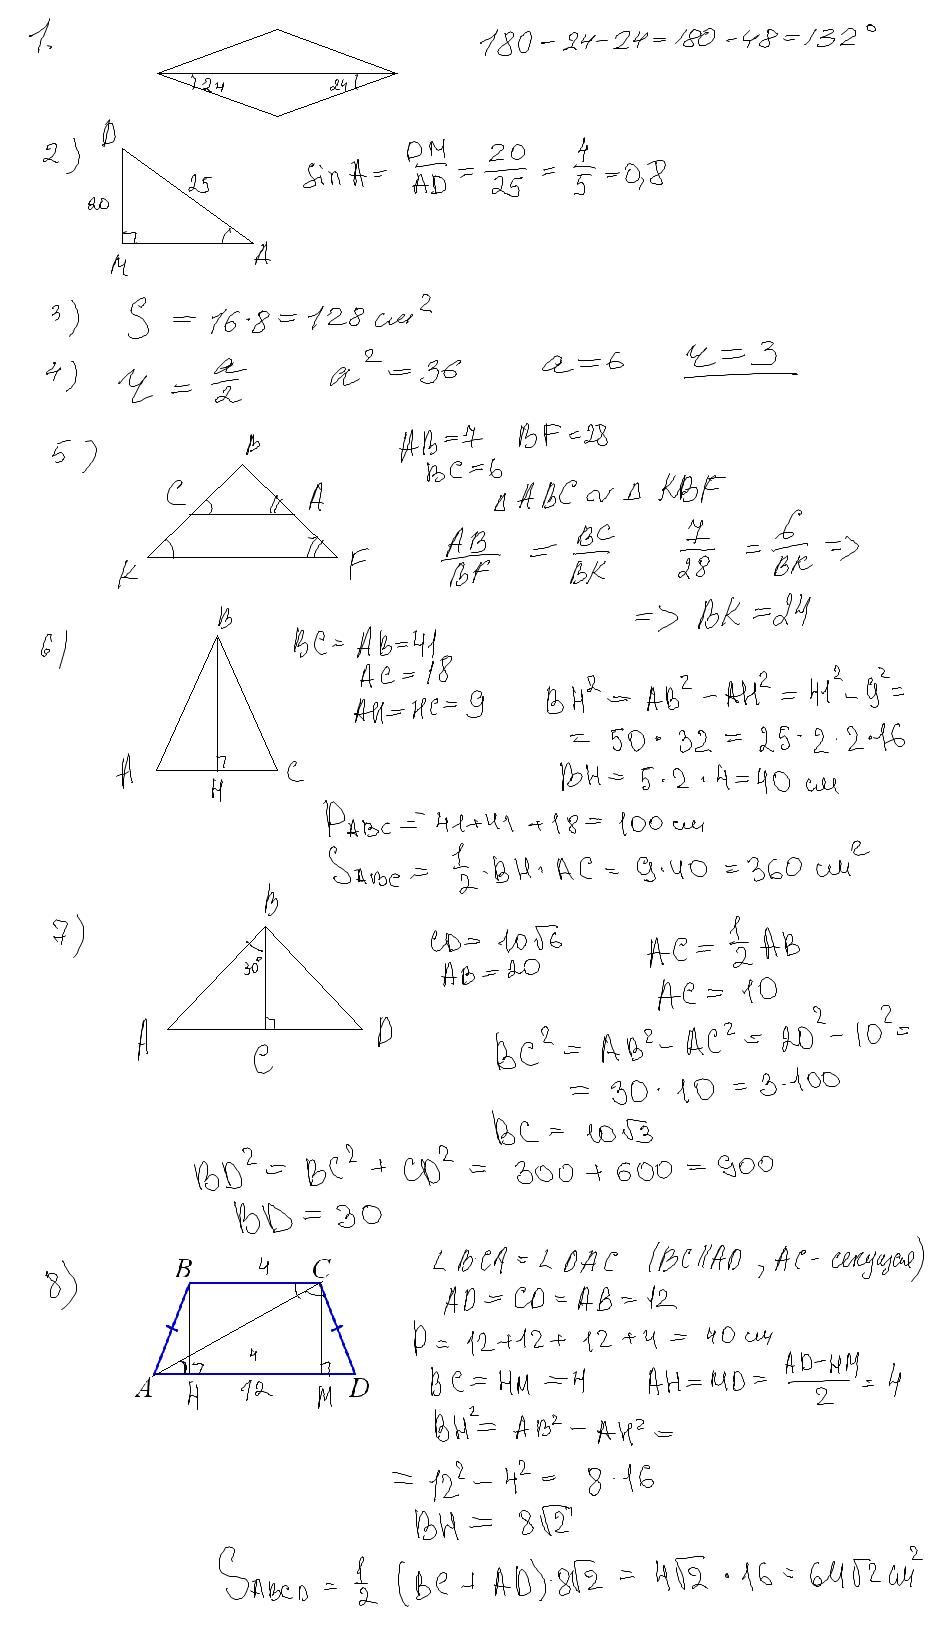 1.
180 - 24 - 24 = 180 - 48 = 132°
24 24
2)
D
20 25
M A
sin A = DM/AD = 20/25 = 4/5 = 0,8
3) S = 16·8 = 128 см²
4) r = a/2 a² = 36 a = 6 r = 3
5)
B
C A
K F
AB = 7 BF = 28
BC = 6
△ ABC ∾ △ KBF
AB/BF = BC/BK 7/28 = 6/BK =>
=> BK = 24
6)
B
A H C
BC = AB = 41
AC = 18
AH = HC = 9
BH² = AB² - AH² = 41² - 9² =
= 50 · 32 = 25 · 2 · 2 · 16
BH = 5 · 2 · 4 = 40 см
P ABC = 41 + 41 + 18 = 100 см
S ABC = 1/2 · BH · AC = 9 · 40 = 360 см²
7)
B
30°
A C D
CD = 10√6
AB = 20
AC = 1/2 AB
AC = 10
BC² = AB² - AC² = 20² - 10² =
= 30 · 10 = 3·100
BC = 10√3
BD² = BC² + CD² = 300 + 600 = 900
BD = 30
8)
B 4 C
4
A H 12 M D
∠ BCA = ∠ DAC (BC∥AD, AC - секущая)
AD = CD = AB = 12
P = 12 + 12 + 12 + 4 = 40 см
BC = HM = 4 AH = MD = (AD-HM)/2 = 4
BH² = AB² - AH² =
= 12² - 4² = 8 · 16
BH = 8√2
S ABCD = 1/2 (BC + AD)·8√2 = 4√2 · 16 = 64√2 см²